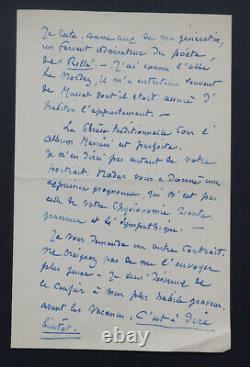 Je suis, comme ceux de ma génération,
un fervent admirateur du poète
de « Rolla ». – J'ai connu l'abbé
Le Nordez, il m'a entretenu souvent
de Musset dont il était assuré d'
habiter l'appartement. –
La Phrase traditionnelle pour l'
album Mariani est parfaite.
Je n'en dirai pas autant de votre
portrait. Nadar vous a donné une
expression grognonne qui n'est pas
celle de votre Physionomie vivante,
gracieuse et si Sympathique. –
Je vous demande un autre Portrait.
Ne craignez pas de me l'envoyer
plus jeune – Je suis désireux de
le confier à mon plus habile graveur
avant les Vacances, C'est à dire
bientôt.
thecrosspics.com